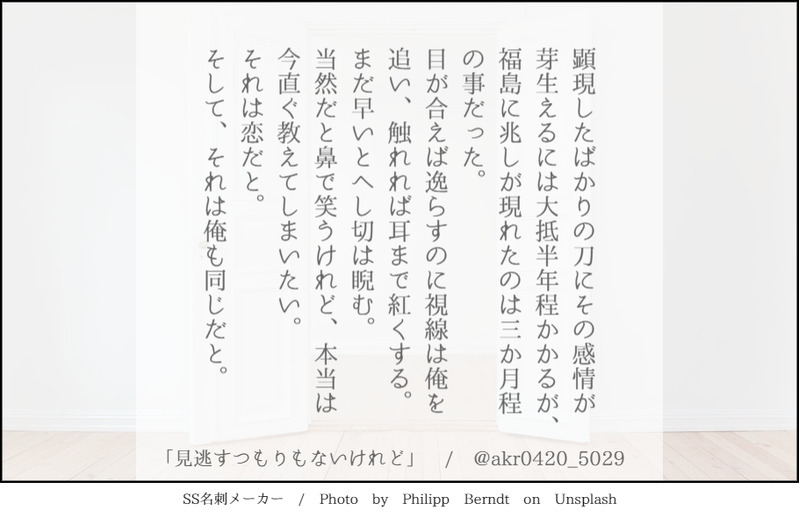 顕現したばかりの刀にその感情が
芽生えるには大抵半年程かかるが、
福島に兆しが現れたのは三か月程
の事だった。
目が合えば逸らすのに視線は俺を
追い、触れれば耳まで紅くする。
まだ早いとへし切は睨む。
当然だと鼻で笑うけれど、本当は
今直ぐ教えてしまいたい。
それは恋だと。
そして、それは俺も同じだと。
「見逃すつもりもないけれど」 / @akr0420_5029
SS名刺メーカー / Photo by Philipp Berndt on Unsplash